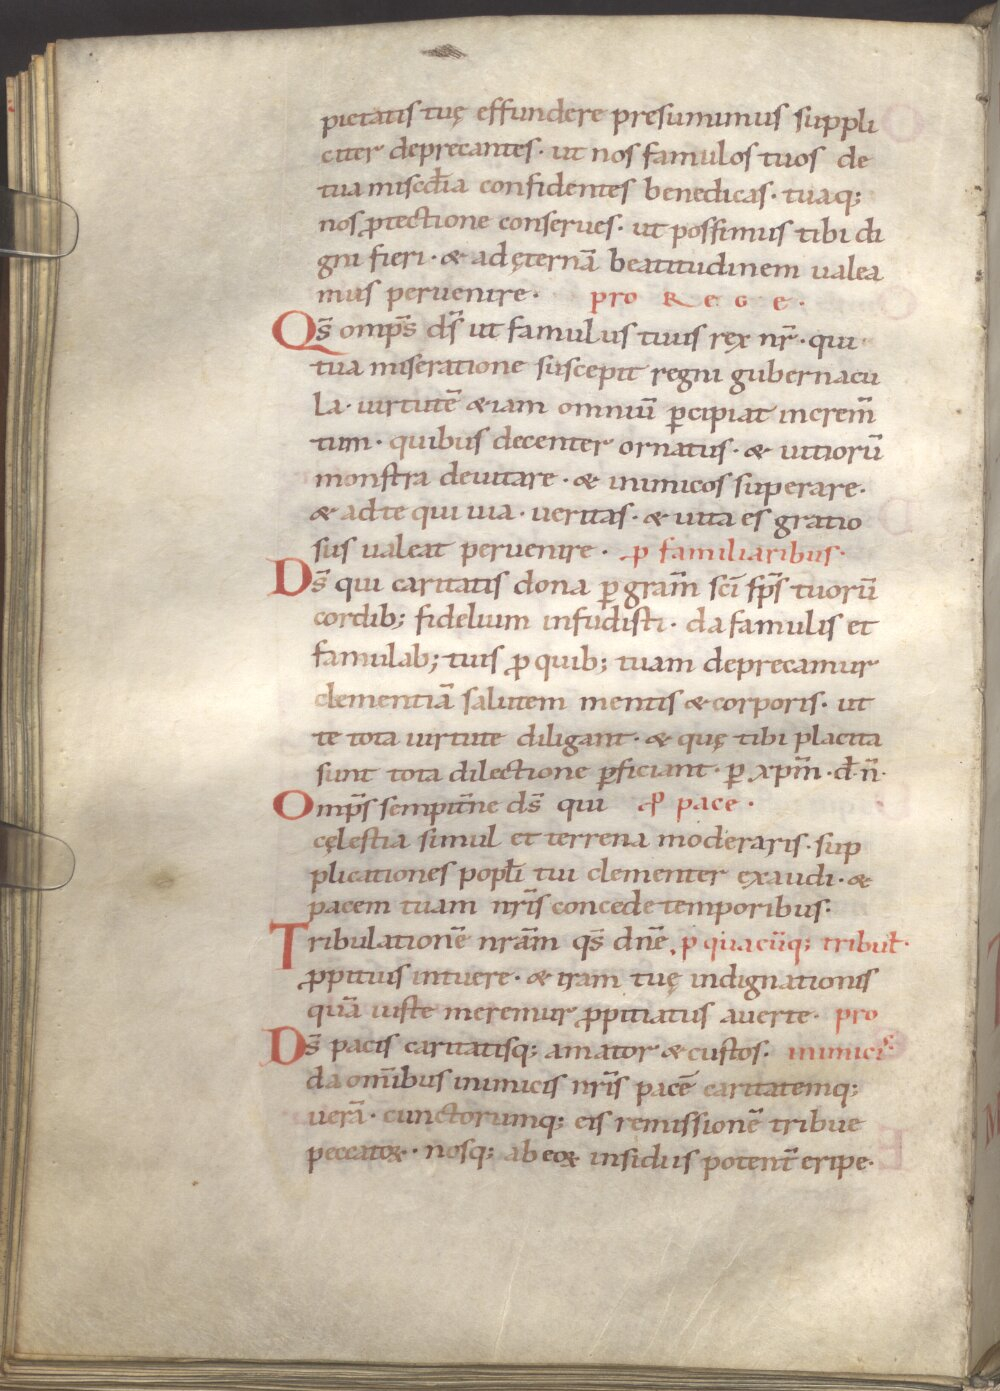 pietatis tuę effundere presumimus suppli
citer deprecantes· ut nos famulos tuos de
tua miscđia confidentes benedicas· tuaq;
nos ꝓtectione conserues· ut possimus tibi di
gni fieri· & ad ęternā beatitudinem ualea
mus peruenire· pro REGE·
Qs̄ omp̄s ds̄ ut famulus tuus rex nr̄· qui
tua miseratione suscepit regni gubernacu
la· uirtutē &iam omniū ꝑcipiat increm̄
tum· quibus decenter ornatus· & uitiorū
monstra deuitare· & inimicos superare·
& ad te qui uia· ueritas· & uita es gratio
sus ualeat peruenire· ꝓ familiaribus·
Ds̄ qui caritatis dona ꝑ gram̄ sc̄i sp̄s tuorū
cordib; fidelium infudisti· da famulis et
famulab; tuis ꝓ quib; tuam deprecamur
clementiā salutem mentis & corporis· ut
te tota uirtute diligant· & quę tibi placita
sunt tota dilectione ꝑficiant· ꝑ xp̄m· d·n̄·
Omp̄s sempit̄ne ds̄ qui ꝓ pace·
cęlestia simul et terrena moderaris· sup
plicationes popłi tui clementer exaudi· &
pacem tuam nr̄is concede temporibus·
Tribulationē nrām qs̄ dn̄e ꝓ quacūq; tribuł·
ꝓpitius intuere· & iram tuę indignationis
quā iuste meremur ꝓpitiatus auerte· pro
Ds̄ pacis caritatisq; amator & custos· inimicis·
da om̄ibus inimicis nr̄is pacē caritatemq;
uerā· cunctorumq; eis remissionē tribue
peccatoꝝ· nosq; ab eoꝝ insidiis potent̄ eripe·